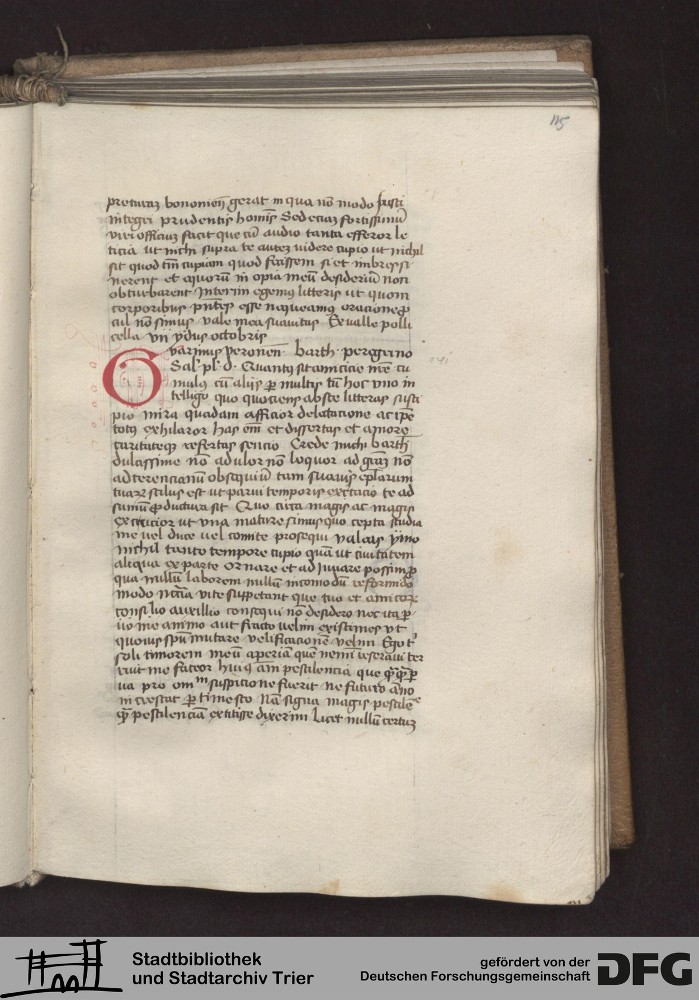 115
preturaz bononien gerat in qua no modo justi
integri prudentis hominis Sed eciaz fortissimi
viri officiuz facit que cu audio tanta efferor le
ticia ut michi supra te autez videre cupio ut nichil
sit quod tm cupiam quod si essem si et imbres si
nerent et equoru in opia meu desideriu non
obturbarent Interim egemus litteris ut quom
corporibus pntes esse nequeamus oracione pro
cul no simus vale mea suavitas Ex valle polli
cella vii ydus octobris
Guarinus veronen barth peregrino
Sal pl d Quantus sit amicicie nre cu
mulus cu alijs per multis tu hoc vno in
telligo quo quociens abs te litteras susci
pio mira quadam afficior delectacione ac ipe
totus exhilaror has em et dissertas et amore
caritateque refertas sencio Crede michi barth
dulcissime no adulor no loquor ad gram no
ad tercianum obsequiu tam suavis eplarum
tuarum stilus est ut parvi temporis exercacio te ad
sumu productura sit Quo circa magis ac magis
excrucior ut vna mature simus quo cepta studia
me vel duce vel comite prosequi valeas ymo
nichil tanto tempore cupio quam ut civitatem
aliqua ex parte ornare et adjuvare possim pro
qua nullu laborem nullu incomodu reformido
modo nram vite suppetant que tuo et amicorum
consilio auxilio consequi no desidero nec ita per
vo me animo aut fracto velim existimes ut
quovis spu mutare velificacione velim Ego t
soli timorem meu aperiam que nemini reseravi ter
ruit me fateor huius am pestilencia que quamquam par
va pro omm suspicione fuerit ne futuro ano
in crescat pertimesco Na signa magis pestile
quam pestilenciam extitisse dixerim Licet nullu certuz
Stadtbibliothek
und Stadtarchiv Trier
gefördert von der
Deutschen Forschungsgemeinschaft
DFG